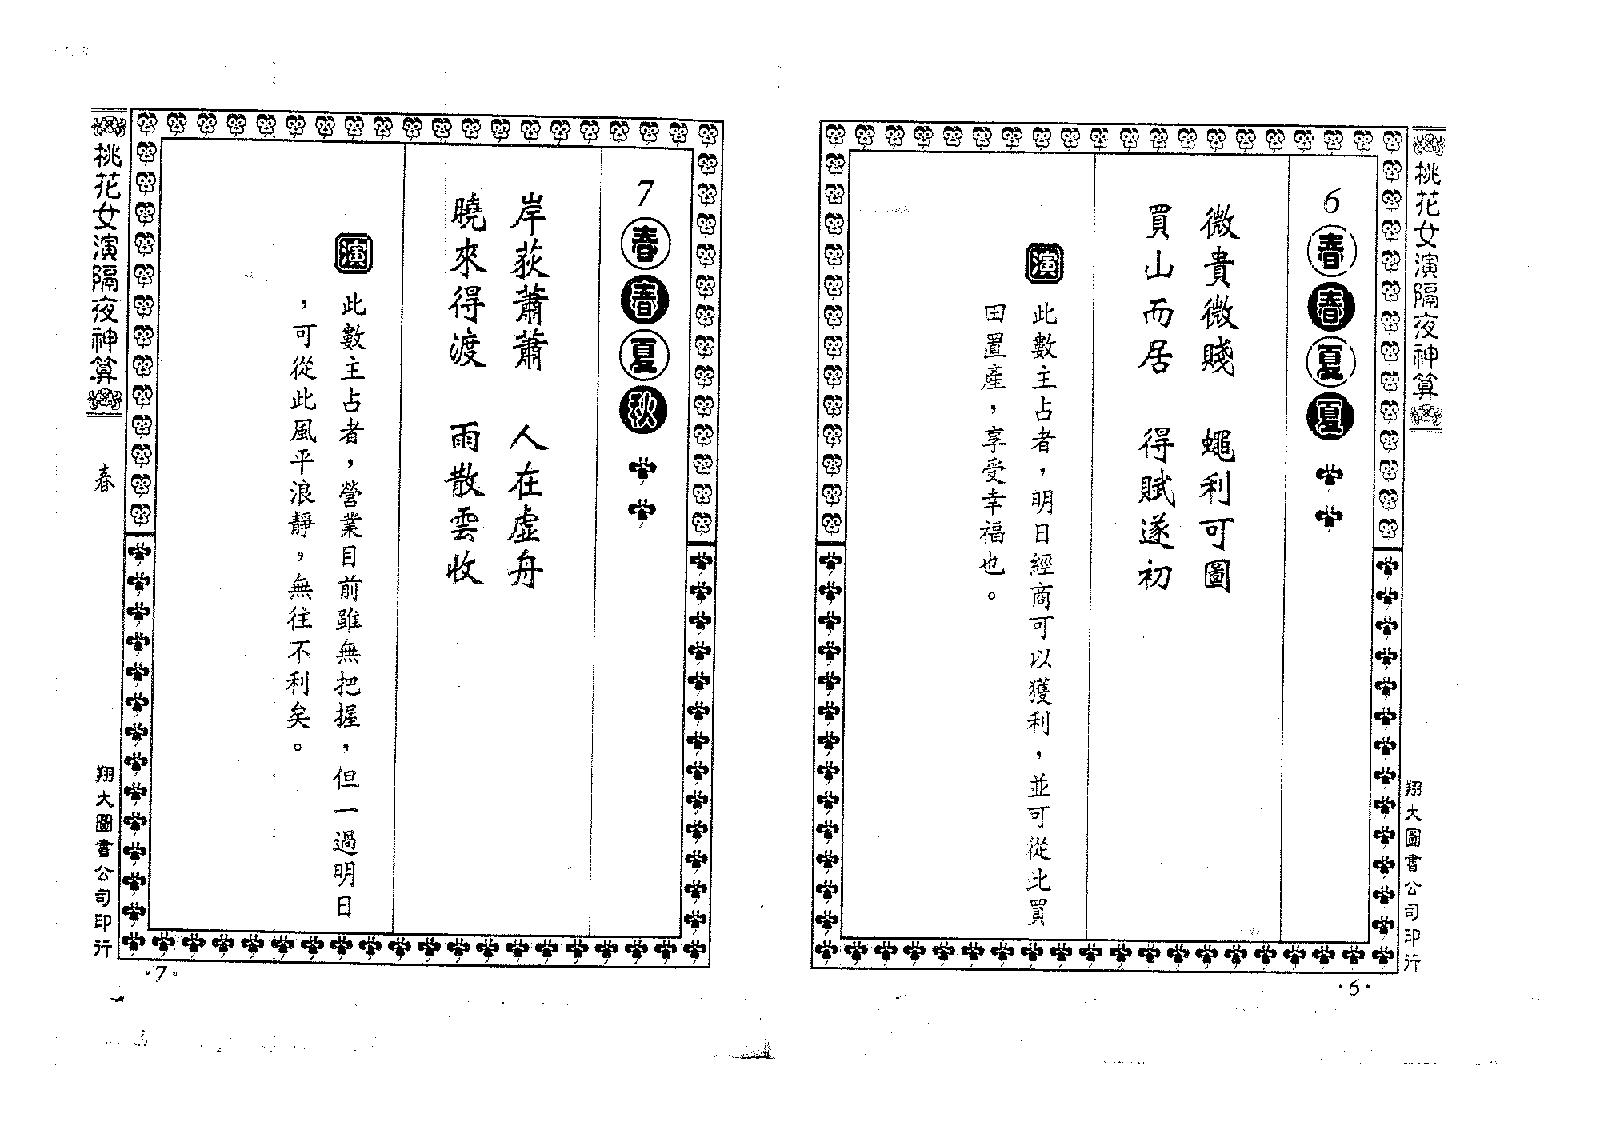 桃花女演隔夜神算
翔大圖書公司印行
6 春春夏夏
微貴微賤 蠅利可圖
買山而居 得賦遂初
演 此數主占者，明日經商可以獲利，並可從此買
田置產，享受幸福也。
·5·
7 春春夏秋
岸荻蕭蕭 人在虛舟
曉來得渡 雨散雲收
演 此數主占者，營業目前雖無把握，但一過明日
，可從此風平浪靜，無往不利矣。
桃花女演隔夜神算
春
翔大圖書公司印行
·7·